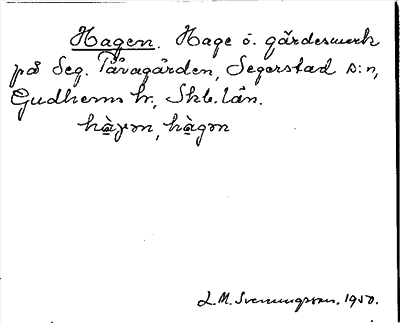 Hagen. Hage o. gärdesmark
på Seg. Påvagården, Segerstad s:n,
Gudhems hr, Skb. län.
hàɣən, hàgən
L. M. Svenungsson. 1950.